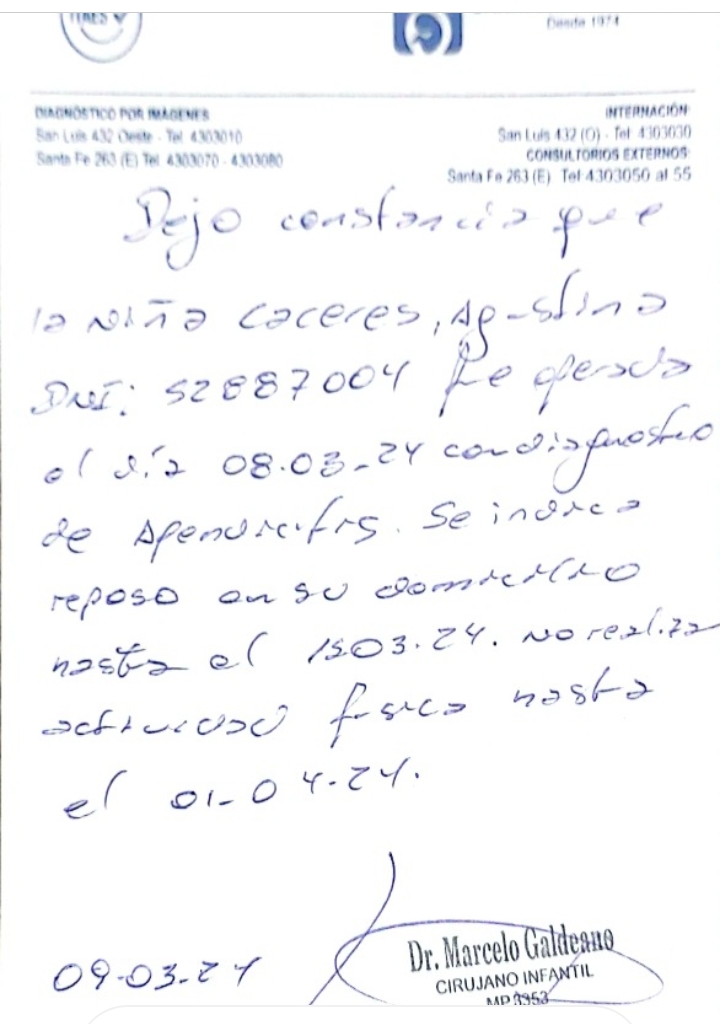 Desde 1974
DIAGNÓSTICO POR IMÁGENES
San Luis 432 Oeste - Tel: 4303010
Santa Fe 263 (E) Tel: 4303070 - 4303080
INTERNACIÓN:
San Luis 432 (O) - Tel: 4303030
CONSULTORIOS EXTERNOS:
Santa Fe 263 (E) Tel: 4303050 al 55
Dejo constancia que
la niña Caceres, Agustina
DNI: 52887004 fue operada
el día 08.03-24 con diagnostico
de Apendicitis. Se indica
reposo en su domicilio
hasta el 1503.24. No realiza
actividad fisica hasta
el 01-04-24.
09-03-24
Dr. Marcelo Galdeano
CIRUJANO INFANTIL
MP 3353